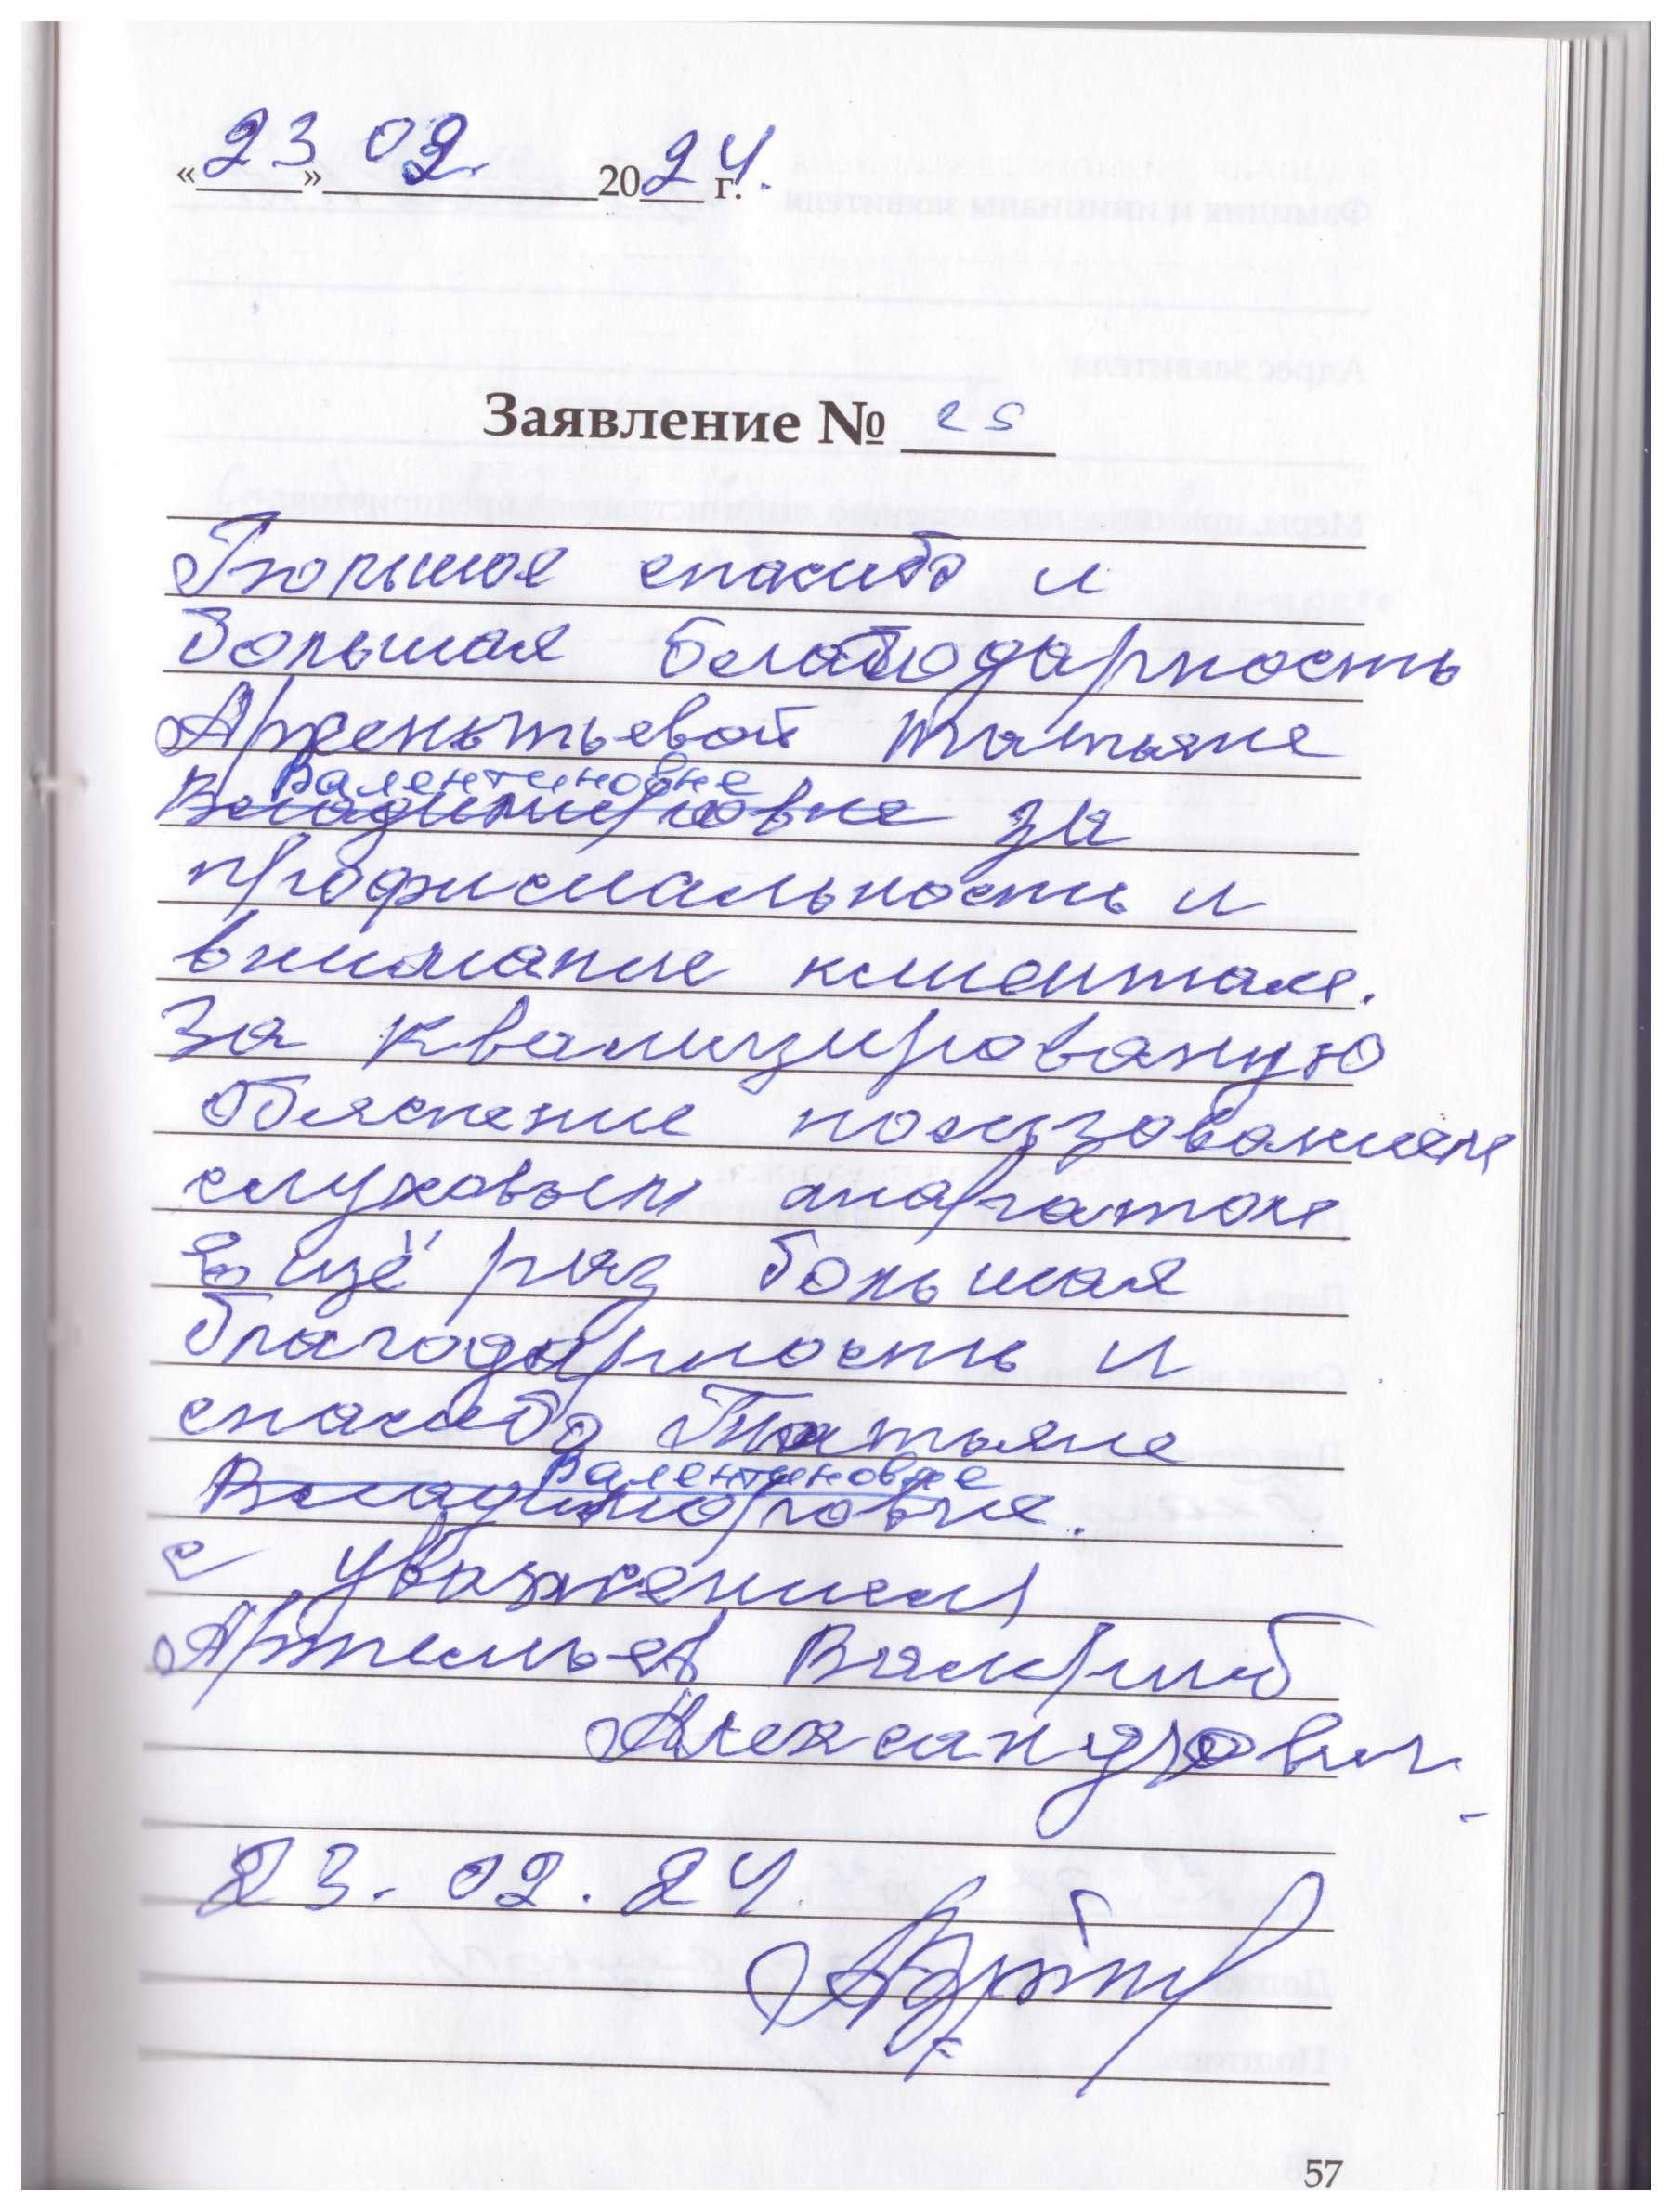 «23» 02. 2024 г.
Заявление № 25
Большое спасибо и
большая благодарность
Арсентьевой Татьяне
Валентиновне
Владимировне за
профисиальность и
внимание клиентам.
За квализированую
обяснение пользованием
слуховым апаратом
Ещё раз большая
благодарность и
спасибо Татьяне
Валентиновне
Владимировне.
с уважением
Артемьев Валерий
Александрович
23.02.24
57